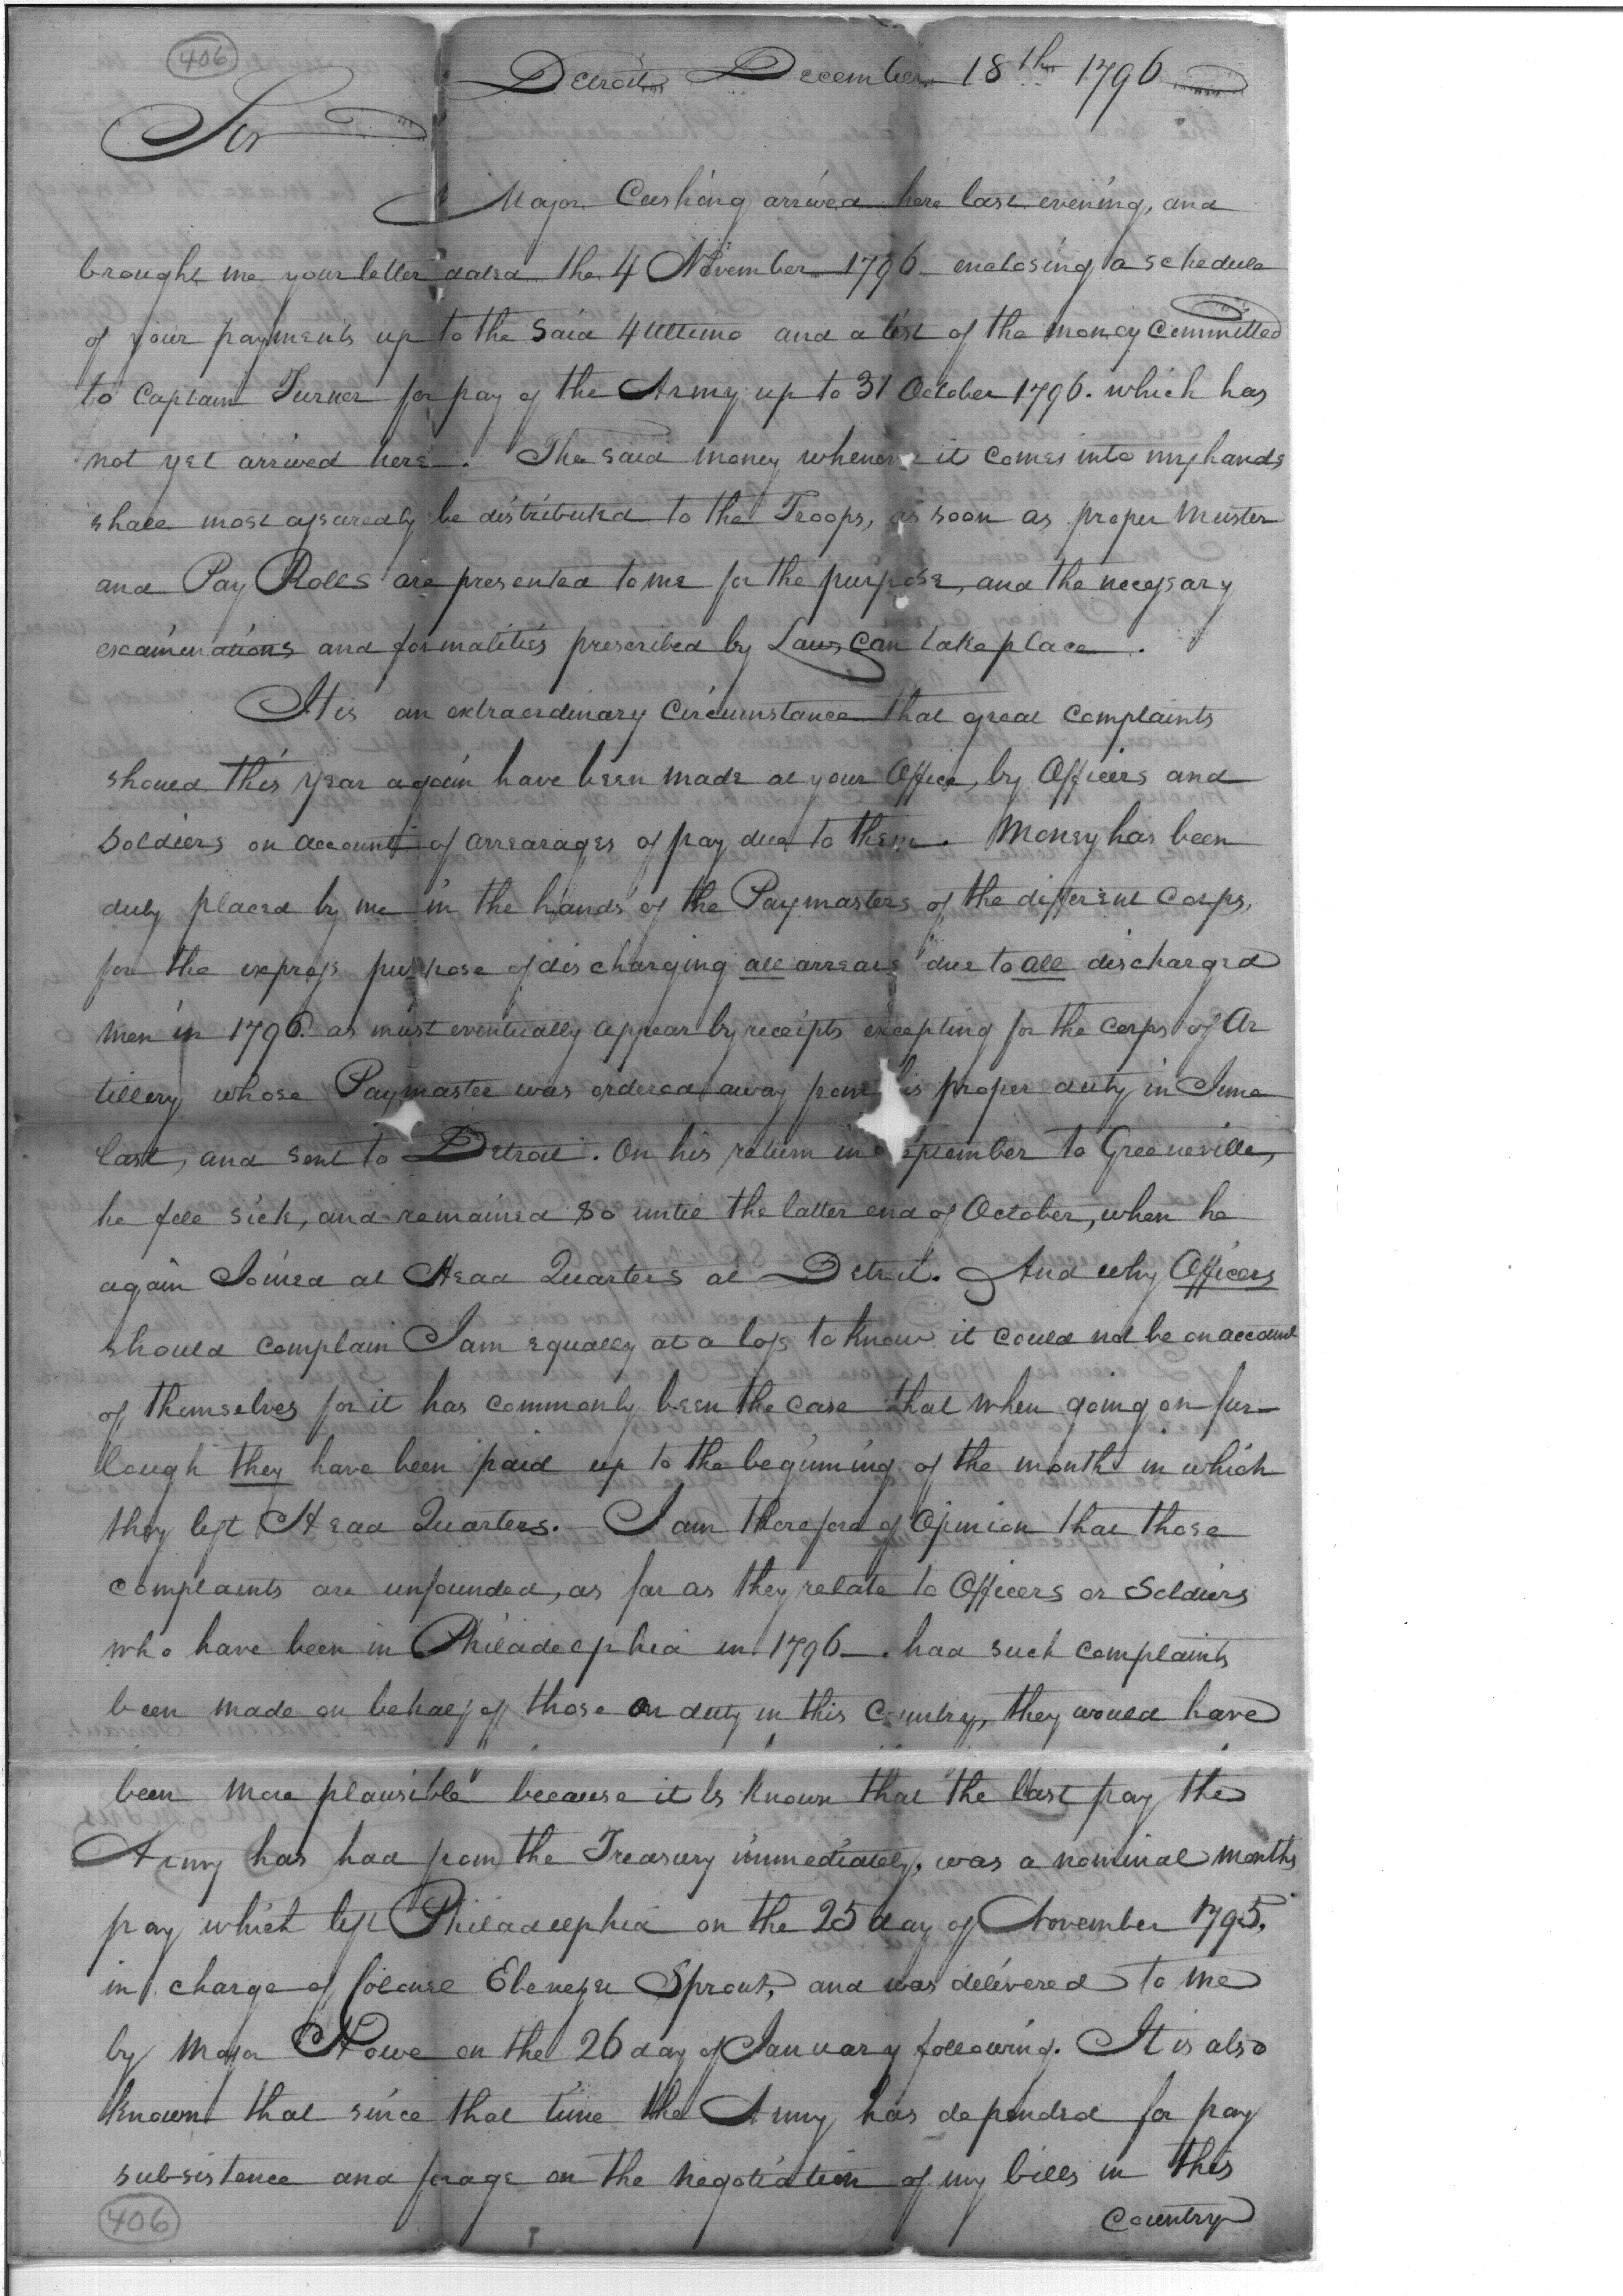 406
Detroit December 18th 1796
Sir
Major Cushing arrived here last evening, and
brought me your letter dated the 4 November 1796 enclosing a schedule
of your payments up to the said 4 Ultimo and a list of the money Committed
to Captain Turner for pay of the Army up to 31 October 1796. which has
not yet arrived here. The said money whenever it comes into my hands
shall most assuredly be distributed to the Troops, as soon as proper Muster
and Pay Rolls are presented to me for the purpose, and the necessary
examinations and formalities prescribed by Laws can take place.
It is an extraordinary Circumstance that great Complaints
should this year again have been made at your Office, by Officers and
Soldiers on account of arrearages of pay due to them. Money has been
duly placed by me in the hands of the Paymasters of the different Corps,
for the express purpose of discharging all arrears due to all discharged
Men in 1796. as must eventually appear by receipts excepting for the Corps of Ar
tillery whose Paymaster was ordered away from his proper duty in June
last, and sent to Detroit. On his return in September to Greeneville,
he fell sick, and remained so until the latter end of October, when he
again Joined at Head Quarters at Detroit. And why Officers
should complain I am equally at a loss to know it could not be on account
of themselves for it has commonly been the case that when going on fur-
lough they have been paid up to the beginning of the month in which
they left Head Quarters. I am therefore of Opinion that those
complaints are unfounded, as far as they relate to Officers or Soldiers
who have been in Philadelphia in 1796. had such complaints
been made on behalf of those on duty in this Country, they would have
been more plausible because it is known that the last pay the
Army has had from the Treasury immediately, was a nominal months
pay which left Philadelphia on the 25 day of November 1795,
in charge of Colonel Ebenezer Sprout, and was delivered to me
by Major Howe on the 26 day of January following. It is also
known that since that time the Army has depended for pay
subsistence and forage on the negotiation of my bills in this
Country
406